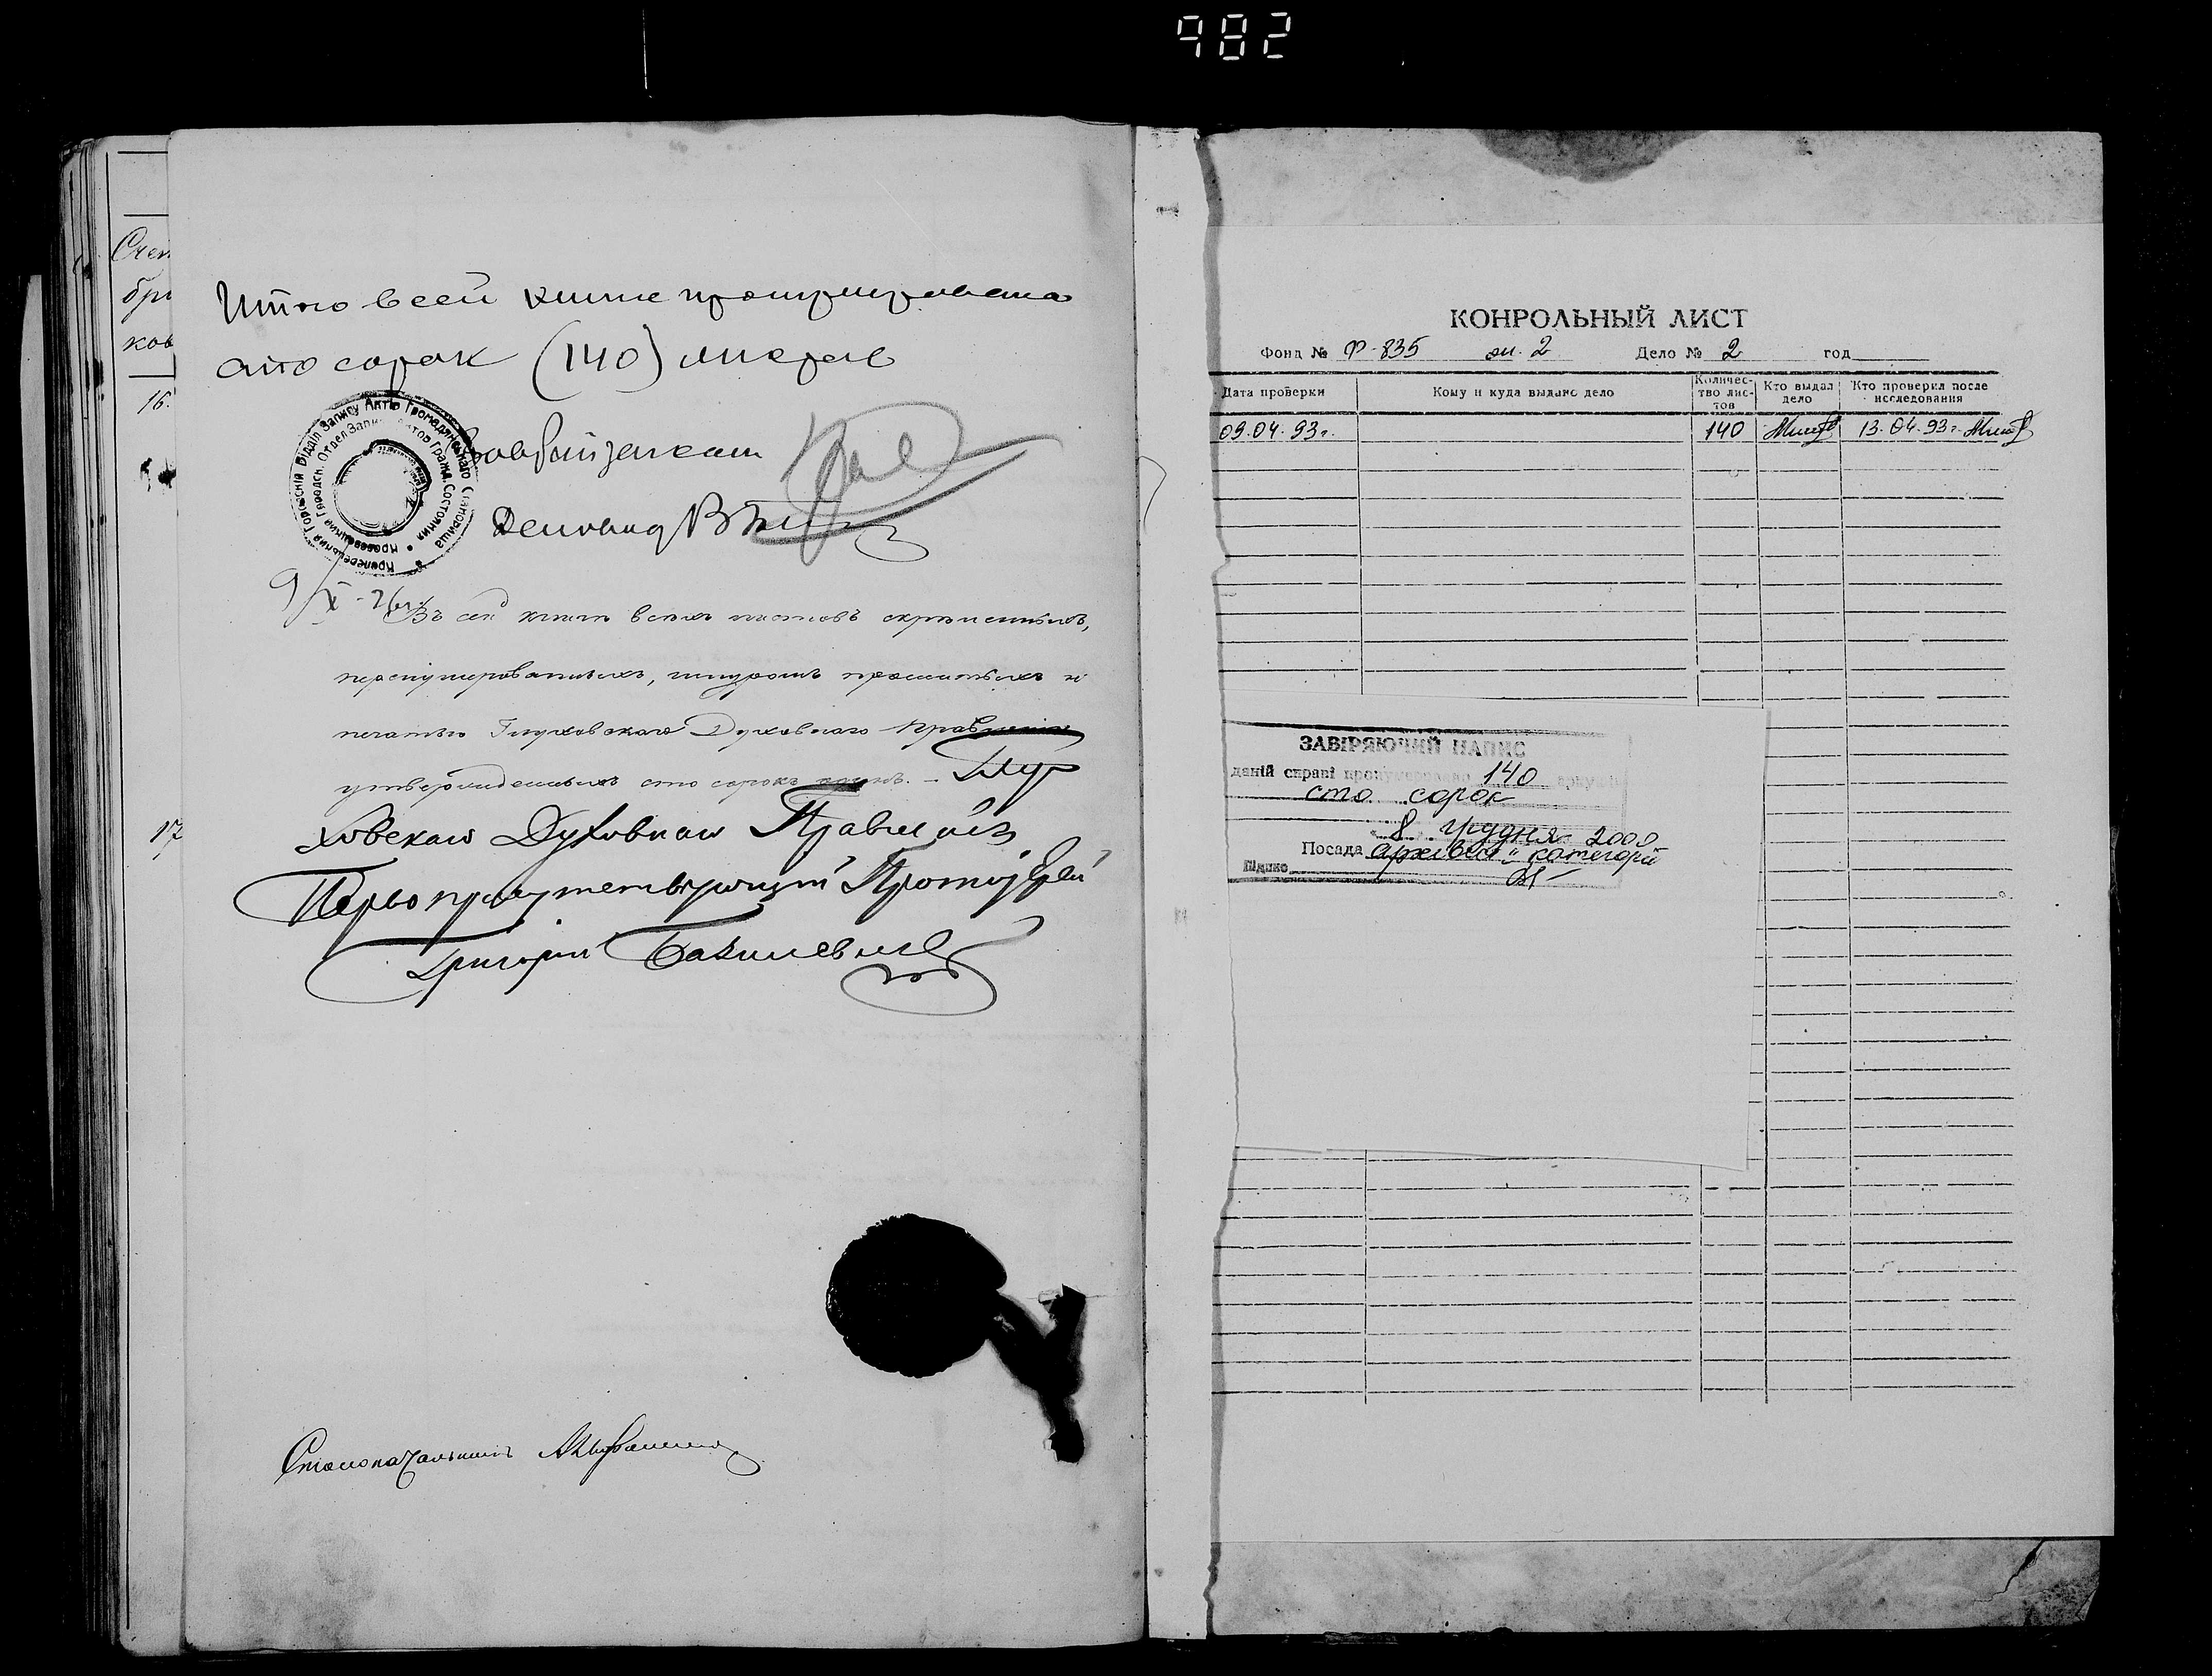 982
Итого в сей книге пронумеровано
сто сорок (140) листов
Кролевецкий Городск. Отдел Записи Актов Гражд. Состояния
Делопод
9/X - 26 г.
Въ сей книге всехъ листовъ скрепленныхъ,
перенумерованныхъ, шнуромъ прошитыхъ и
печатью Глуховскаго Духовнаго Правленія
утвержденныхъ сто сорокъ одинъ. - Глу
ховскаго Духовнаго Правленія
Первоприсутствующій Протоіерей
Григорій Базилевичъ
Столоначальникъ
Счет
бра
ков
16.
17
КОНРОЛЬНЫЙ ЛИСТ
Фонд № Ф-835 оп. 2 Дело № 2 год
Дата проверки Кому и куда выдано дело Количество листов Кто выдал дело Кто проверил после исследования
09.04.93г. 140 13.04.93г.
ЗАВІРЯЮЧИЙ НАПИС
даній справі пронумеровано 140 аркушів
сто сорок
8 грудня 2000
Посада архівіст II категорії
Підпис